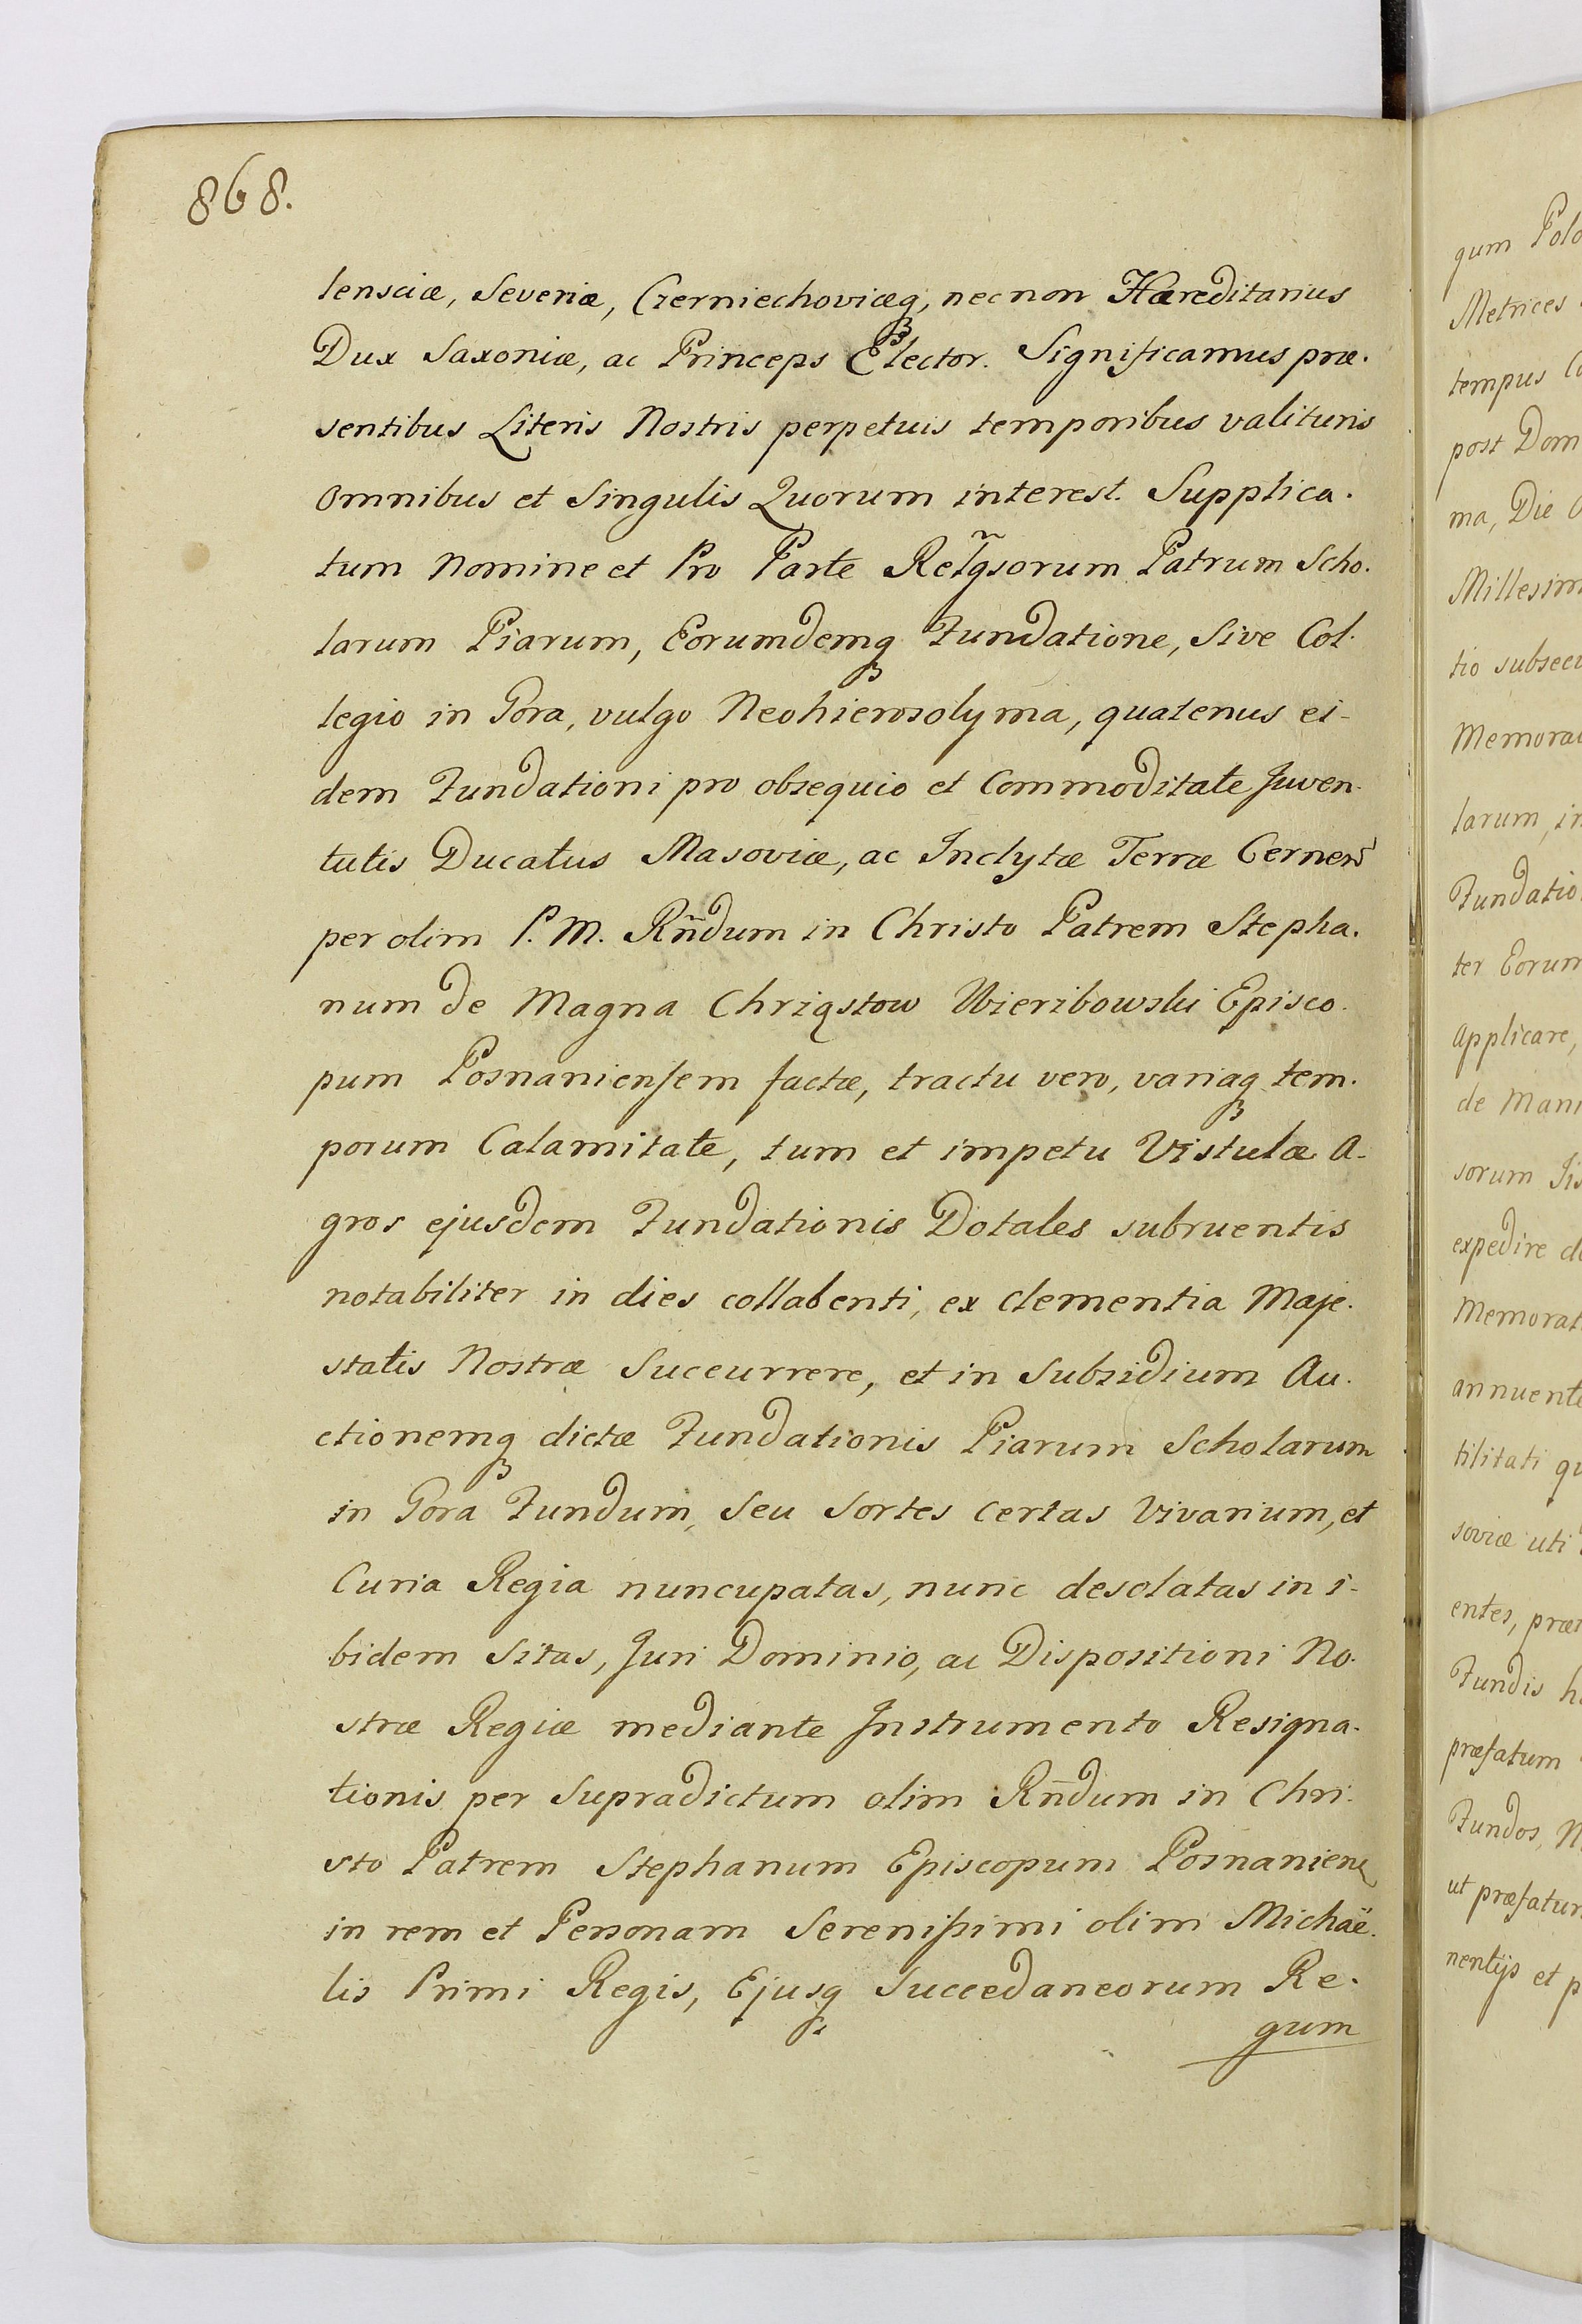 868.
lensciæ, Severiæ, Czerniechoviæq, necnon Hæreditarius
Dux Saxoniæ, ac Princeps Elector. Significamus præ.
sentibus Literis Nostris perpetuis temporibus valituris
omnibus et Singulis Quorum interest. Supplica.
tum Nomine et Pro Parte Rel̃gsorum Patrum Scho.
larum Piarum, Eorumdemq Fundatione, Sive Col.
legio in Gora, vulgo Neohierosolyma, quatenus ei-
dem Fundationi pro obsequio et Commoditate Juven.
tutis Ducatus Masoviæ, ac Inclytæ Terræ Cernen̄
per olim P. M. Rñdum in Christo Patrem Stepha.
num de Magna Chriqstow Wieribowski Episco.
pum Posnaniensem factæ, tractu vero, variaq tem.
porum Calamitate, tum et impetu Vistulæ A-
gros ejusdem Fundationis Dotales subruentis
notabiliter in dies collabenti, ex clementia Maje.
statis Nostræ Succurrere, et in Subsidium Au.
ctionemq dictæ Fundationis Piarum Scholarum
in Gora Fundum, Seu Sortes certas Vivarium, et
Curia Regia nuncupatas, nunc desolatas in i-
bidem Sitas, Juri Dominio, ac Dispositioni No.
stræ Regiæ mediante Instrumento Resigna.
tionis per Supradictum olim Rñdum in Chri.
sto Patrem Stephanum Episcopum Posnanien
in rem et Personam Serenissimi olim Michaë.
lis Primi Regis, Ejusq Succedaneorum Re.
gum
gum Polo
Metrices
tempus
post Dom
ma, Die
Millesim
tio subsec
Memorat
larum, in
Fundatio
ter Eorum
Applicare,
de Mani
sorum
expedire de
Memorat
annuente
tilitati qu
soviæ uti
entes, præ
Fundis h
præfatum
Fundos, N
ut præfatum
nentijs et p